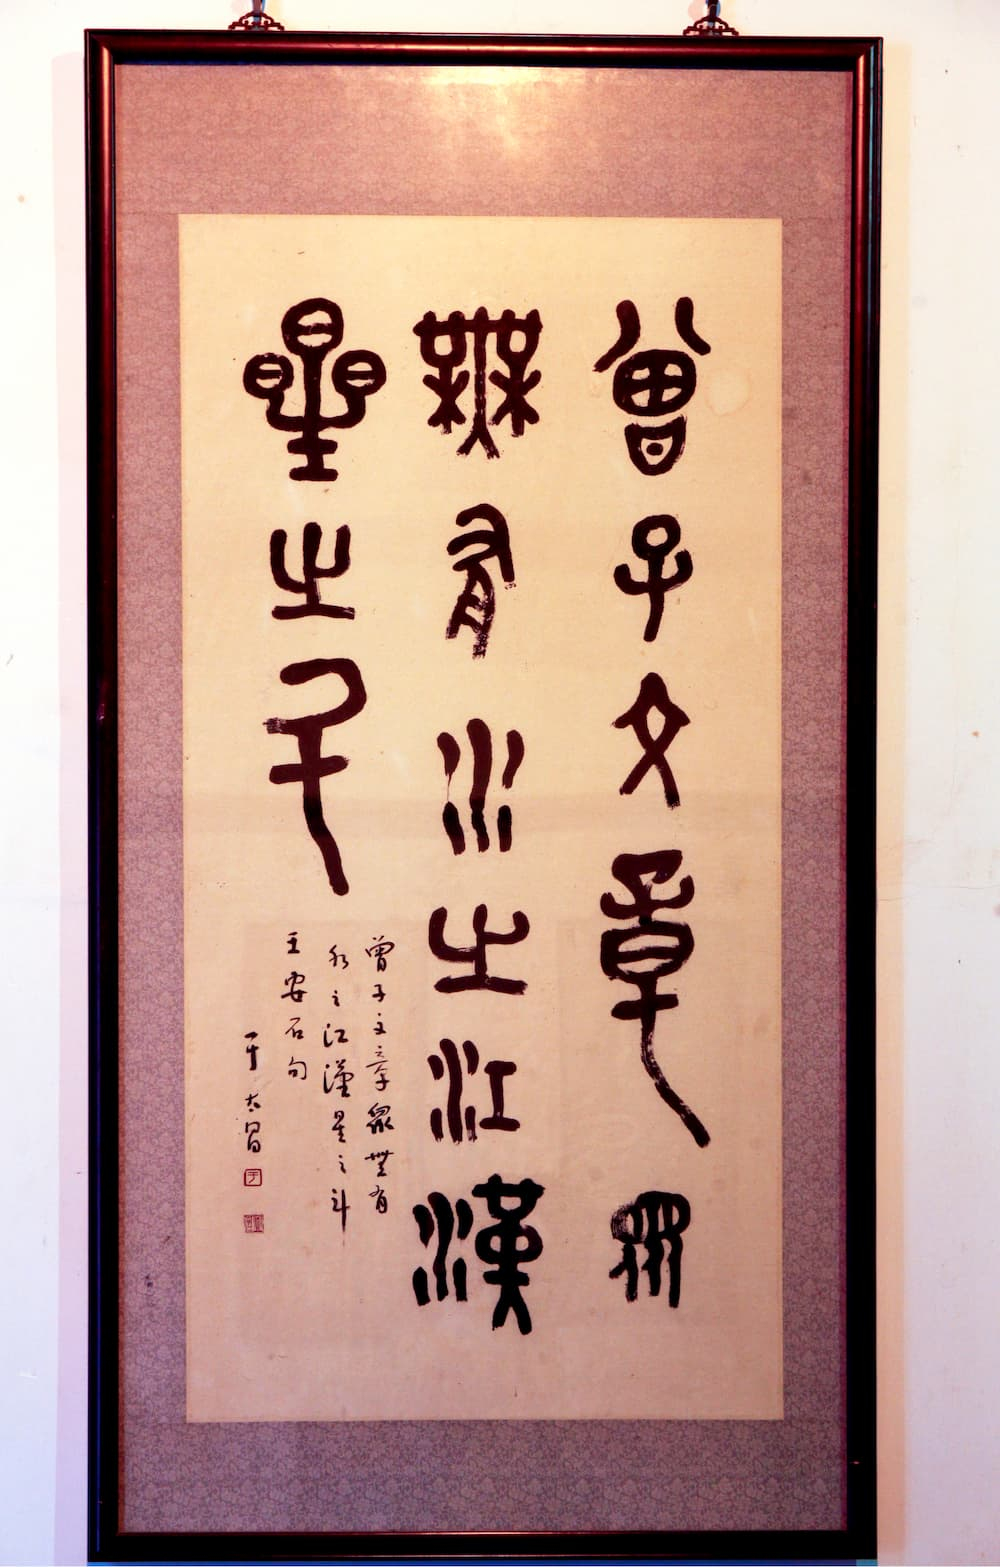 曾子文章眾
無有水之江漢
星之斗
曾子文章眾無有
水之江漢星之斗
王安石句
于太昌
于